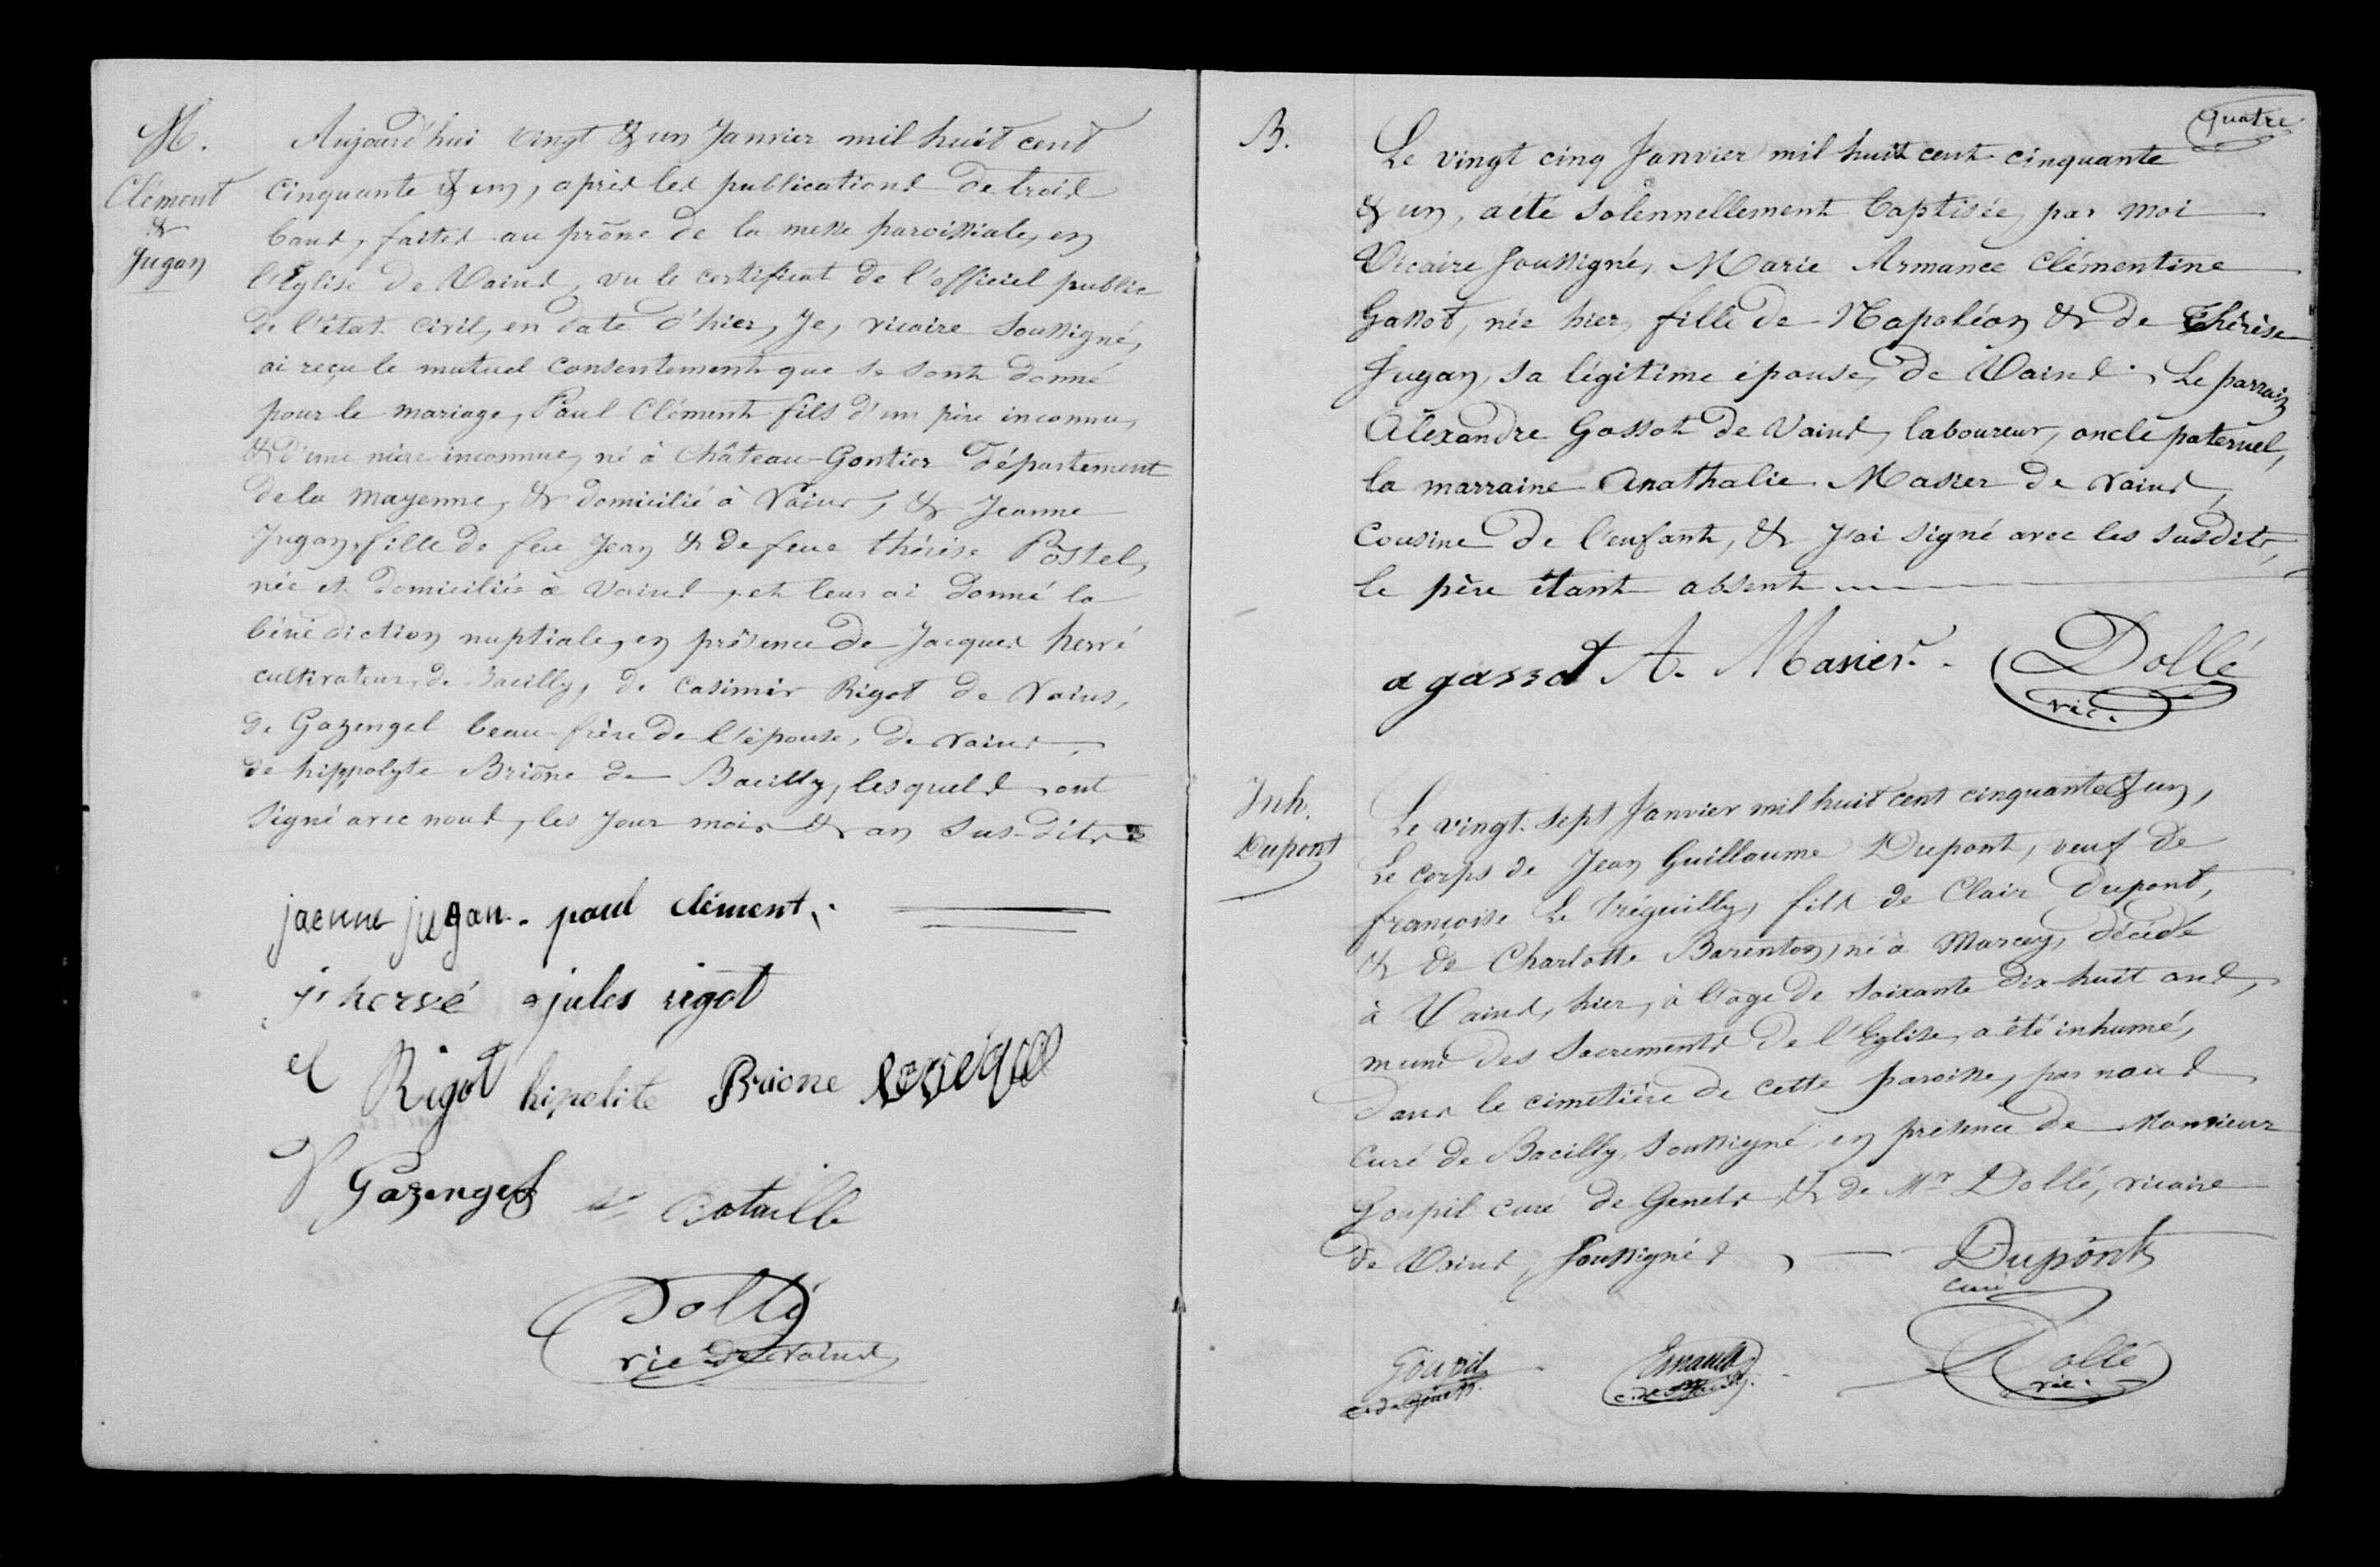 M.
Clément
&
Jugan
Aujourd'hui vingt & un Janvier mil huit cent
cinquante & un, après les publications de trois
bans, faites au prône de la messe paroissiale, en
l'Eglise de Vains, vu le certificat de l'officiel public
de l'état civil, en date d'hier, Je, vicaire soussigné,
ai reçu le mutuel consentement que se sont donné
pour le mariage, Paul Clément fils d'un père inconnu,
& d'une mère inconnue, né à Château-Gontier Département
de la mayenne, & domicilié à Vains, & Jeanne
Jugan, fille de feu Jean & de feue thérèse Postel,
née et domiciliée à Vains, et leur ai donné la
bénédiction nuptiale, en présence de Jacques hervé
cultivateur, de Bacilly, de Casimir Rigot de Vains,
de Gazengel beau-frère de l'épouse, de Vains,
de hippolyte Briône de Bacilly, lesquels ont
signé avec nous, les Jour mois & an sus-dits
jaenne jugan. paul clément.
j hervé jules rigot
el Rigot hipolite Brione
V Gazengel Bataille
Dollé
vic de Vains
quatre
B.
Le vingt cinq Janvier mil huit cent cinquante
& un, a été solennellement baptisée, par moi
Vicaire soussigné, Marie Armance Clémentine
Gassot, née hier, fille de Napoléon & de Thérèse
Jugan, sa légitime épouse, de Vains. Le parrain
Alexandre Gassot de Vains, laboureur, oncle paternel,
la marraine Anathalie Masier de Vains,
Cousine de l'enfant, & J'ai signé avec les susdits,
le père étant absent
a gassot A. Masier. Dollé
vic.
Inh.
Dupont
Le vingt-sept Janvier mil huit cent cinquante & un,
Le corps de Jean Guillaume Dupont, veuf de
françoise Le Tréguilly, fils de Clair Dupont,
& de Charlotte Barenton, né à Marcey, décédé
à Vains, hier, à l'âge de soixante dix-huit ans,
muni des Sacrements de l'Eglise, a été inhumé,
dans le cimetière de cette paroisse, par nous
Curé de Bacilly, soussigné, en présence de Monsieur
Goupil curé de Genets & de Mr Dollé, vicaire
de Vains, soussignés, Dupont
curé
Goupil
c. de Genets.
Dollé
vic.